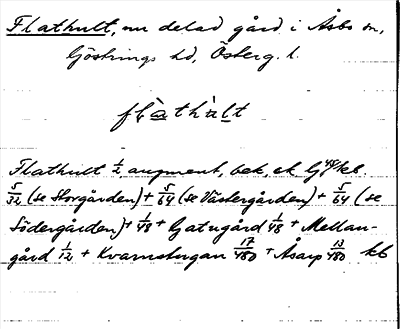 Flathult, nu delad gård i Åsbo sn,
Göstrings hd, Österg. l.
flàthùlt
Flathult 1/2 augment, bek, ek
5/32 (se Storgården) + 5/64 (se Västergården) + 5/64 (se
Södergården) + 1/48 + Gatugård 1/48 + Mellan-
gård 1/12 + Kvarnstugan 17/480 + Åsarp 13/480 kb